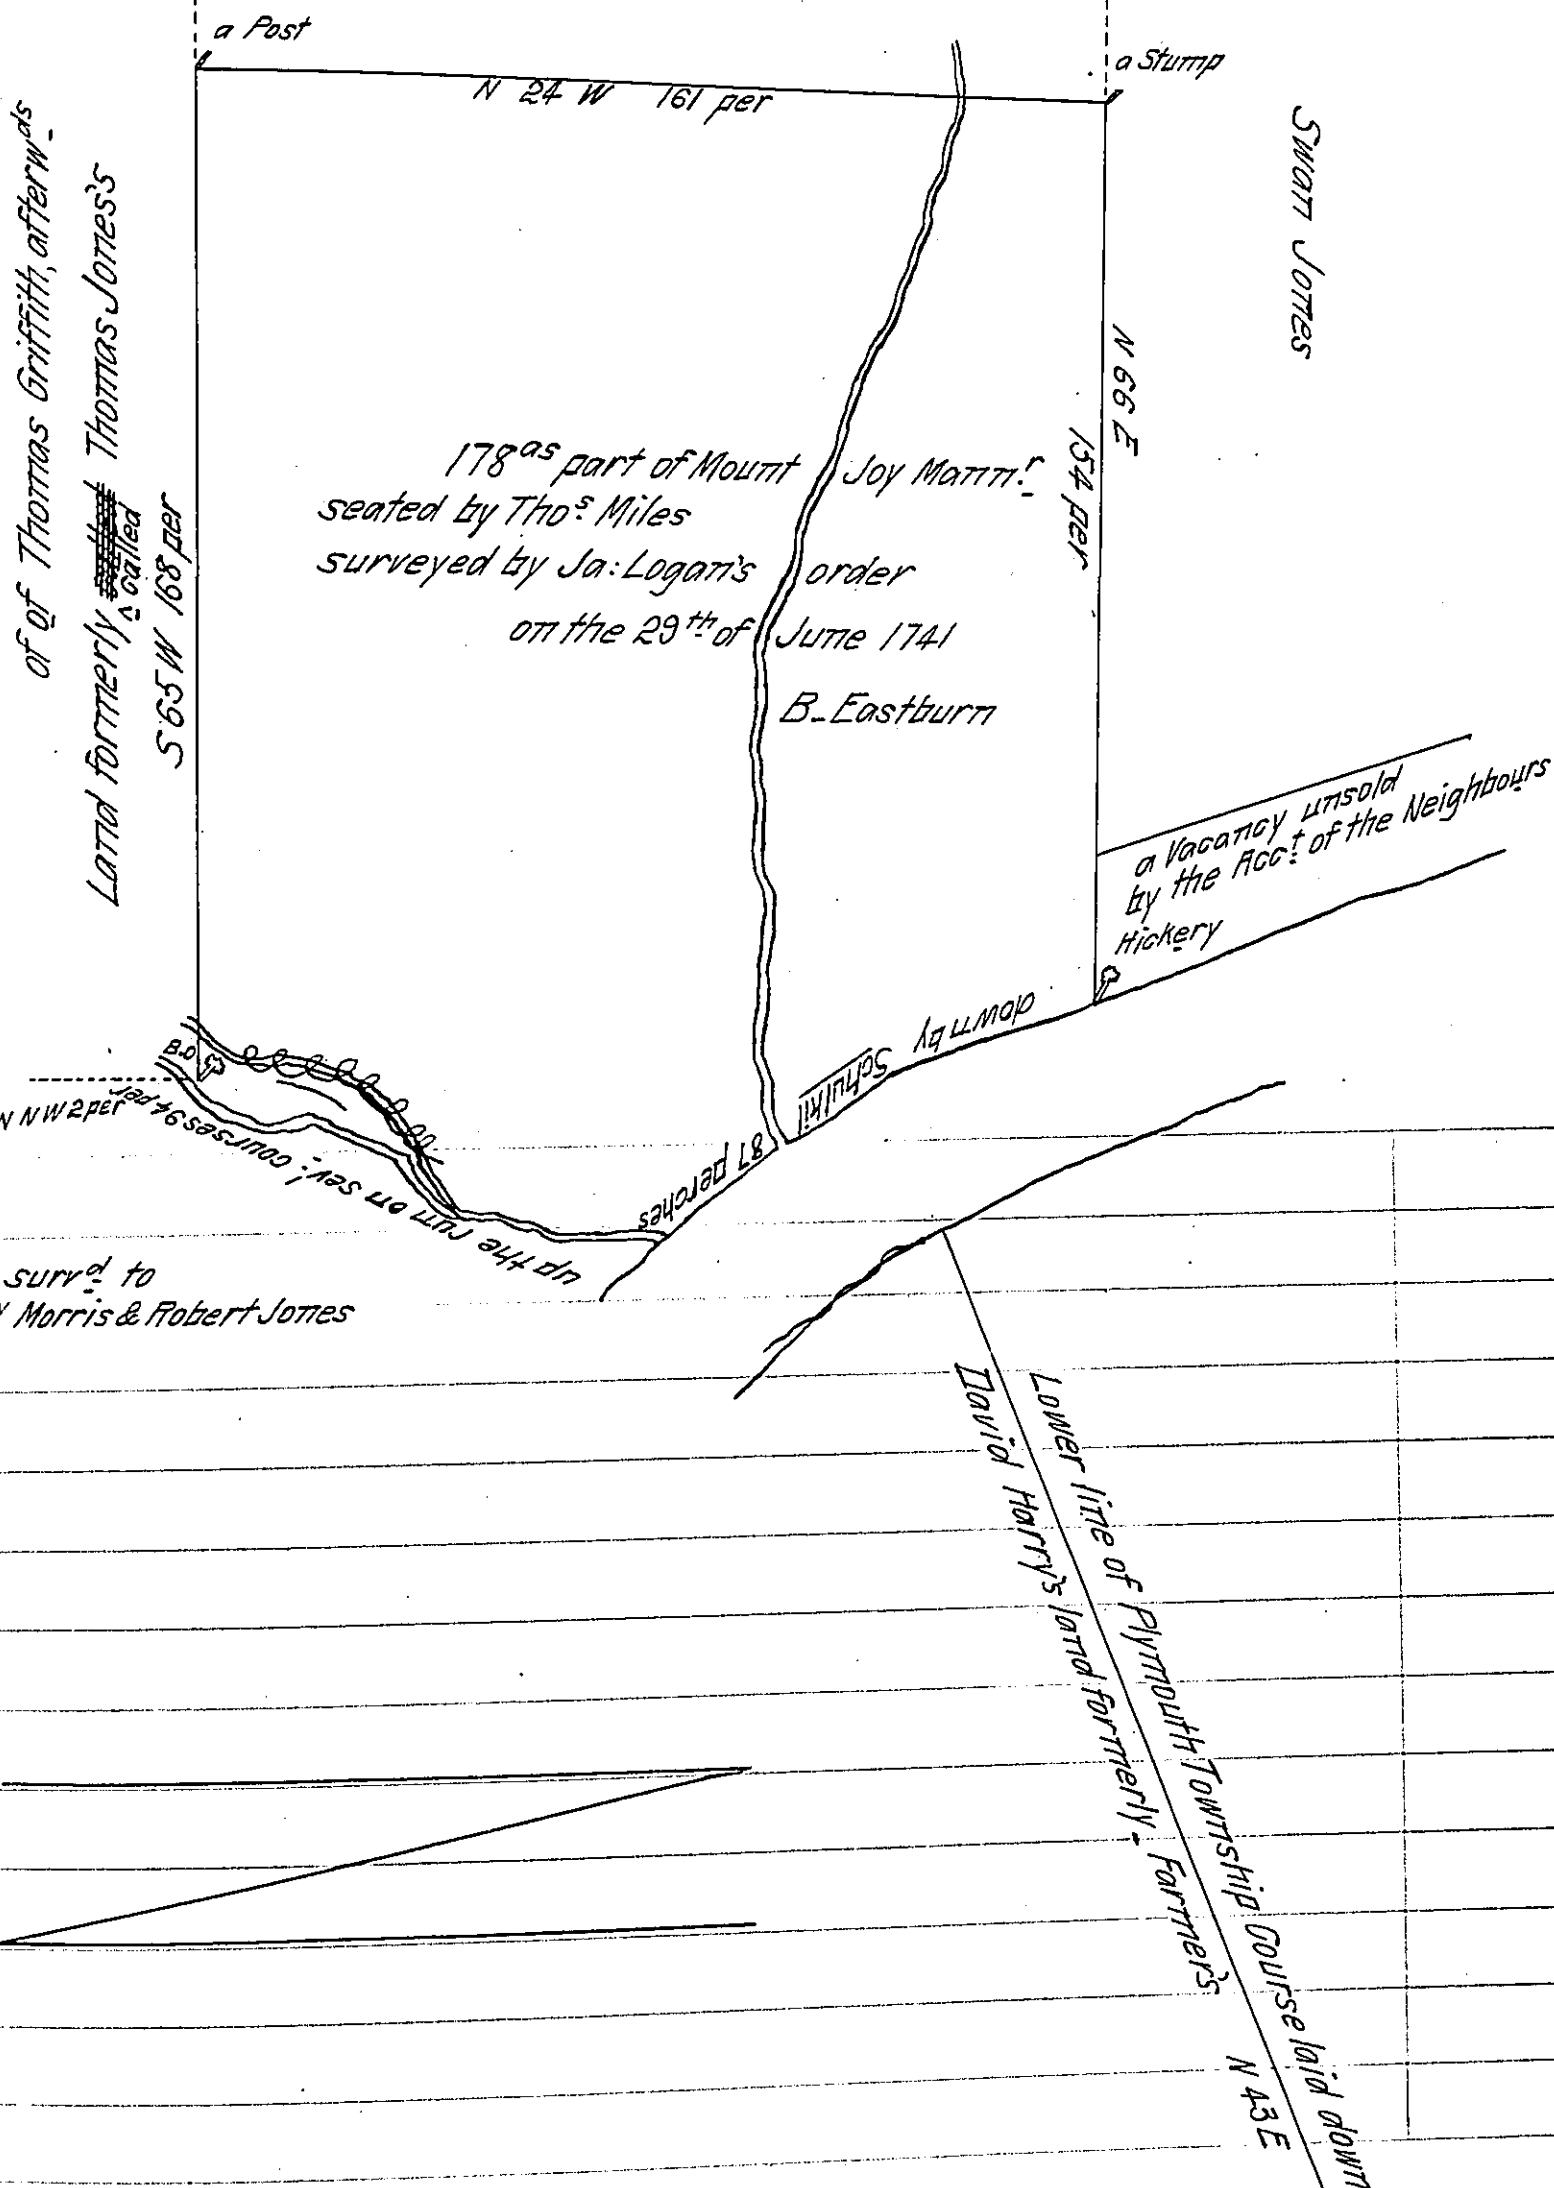 a Post
a Stump
N 24 W 161 per
Swan Jones
of of Thomas Griffith, afterwds
Land formerly called Thomas Jones's
S 65 W 168 per
N 66 E
154 per
178as part of Mount Joy Mannr
seated by Thos Miles
surveyed by Ja: Logan's order
on the 29th of June 1741
B. Eastburn
a Vacancy unsold
by the Acct of the Neighbours
Hickery
down by Schulkil 87 perches
B.O
N NW 2 per
up the run on sevl courses 94 per
survd to
Morris & Robert Jones
Lower line of Plymouth Township Course laid down
David Harry's land formerly - Farmer's
N 43 E